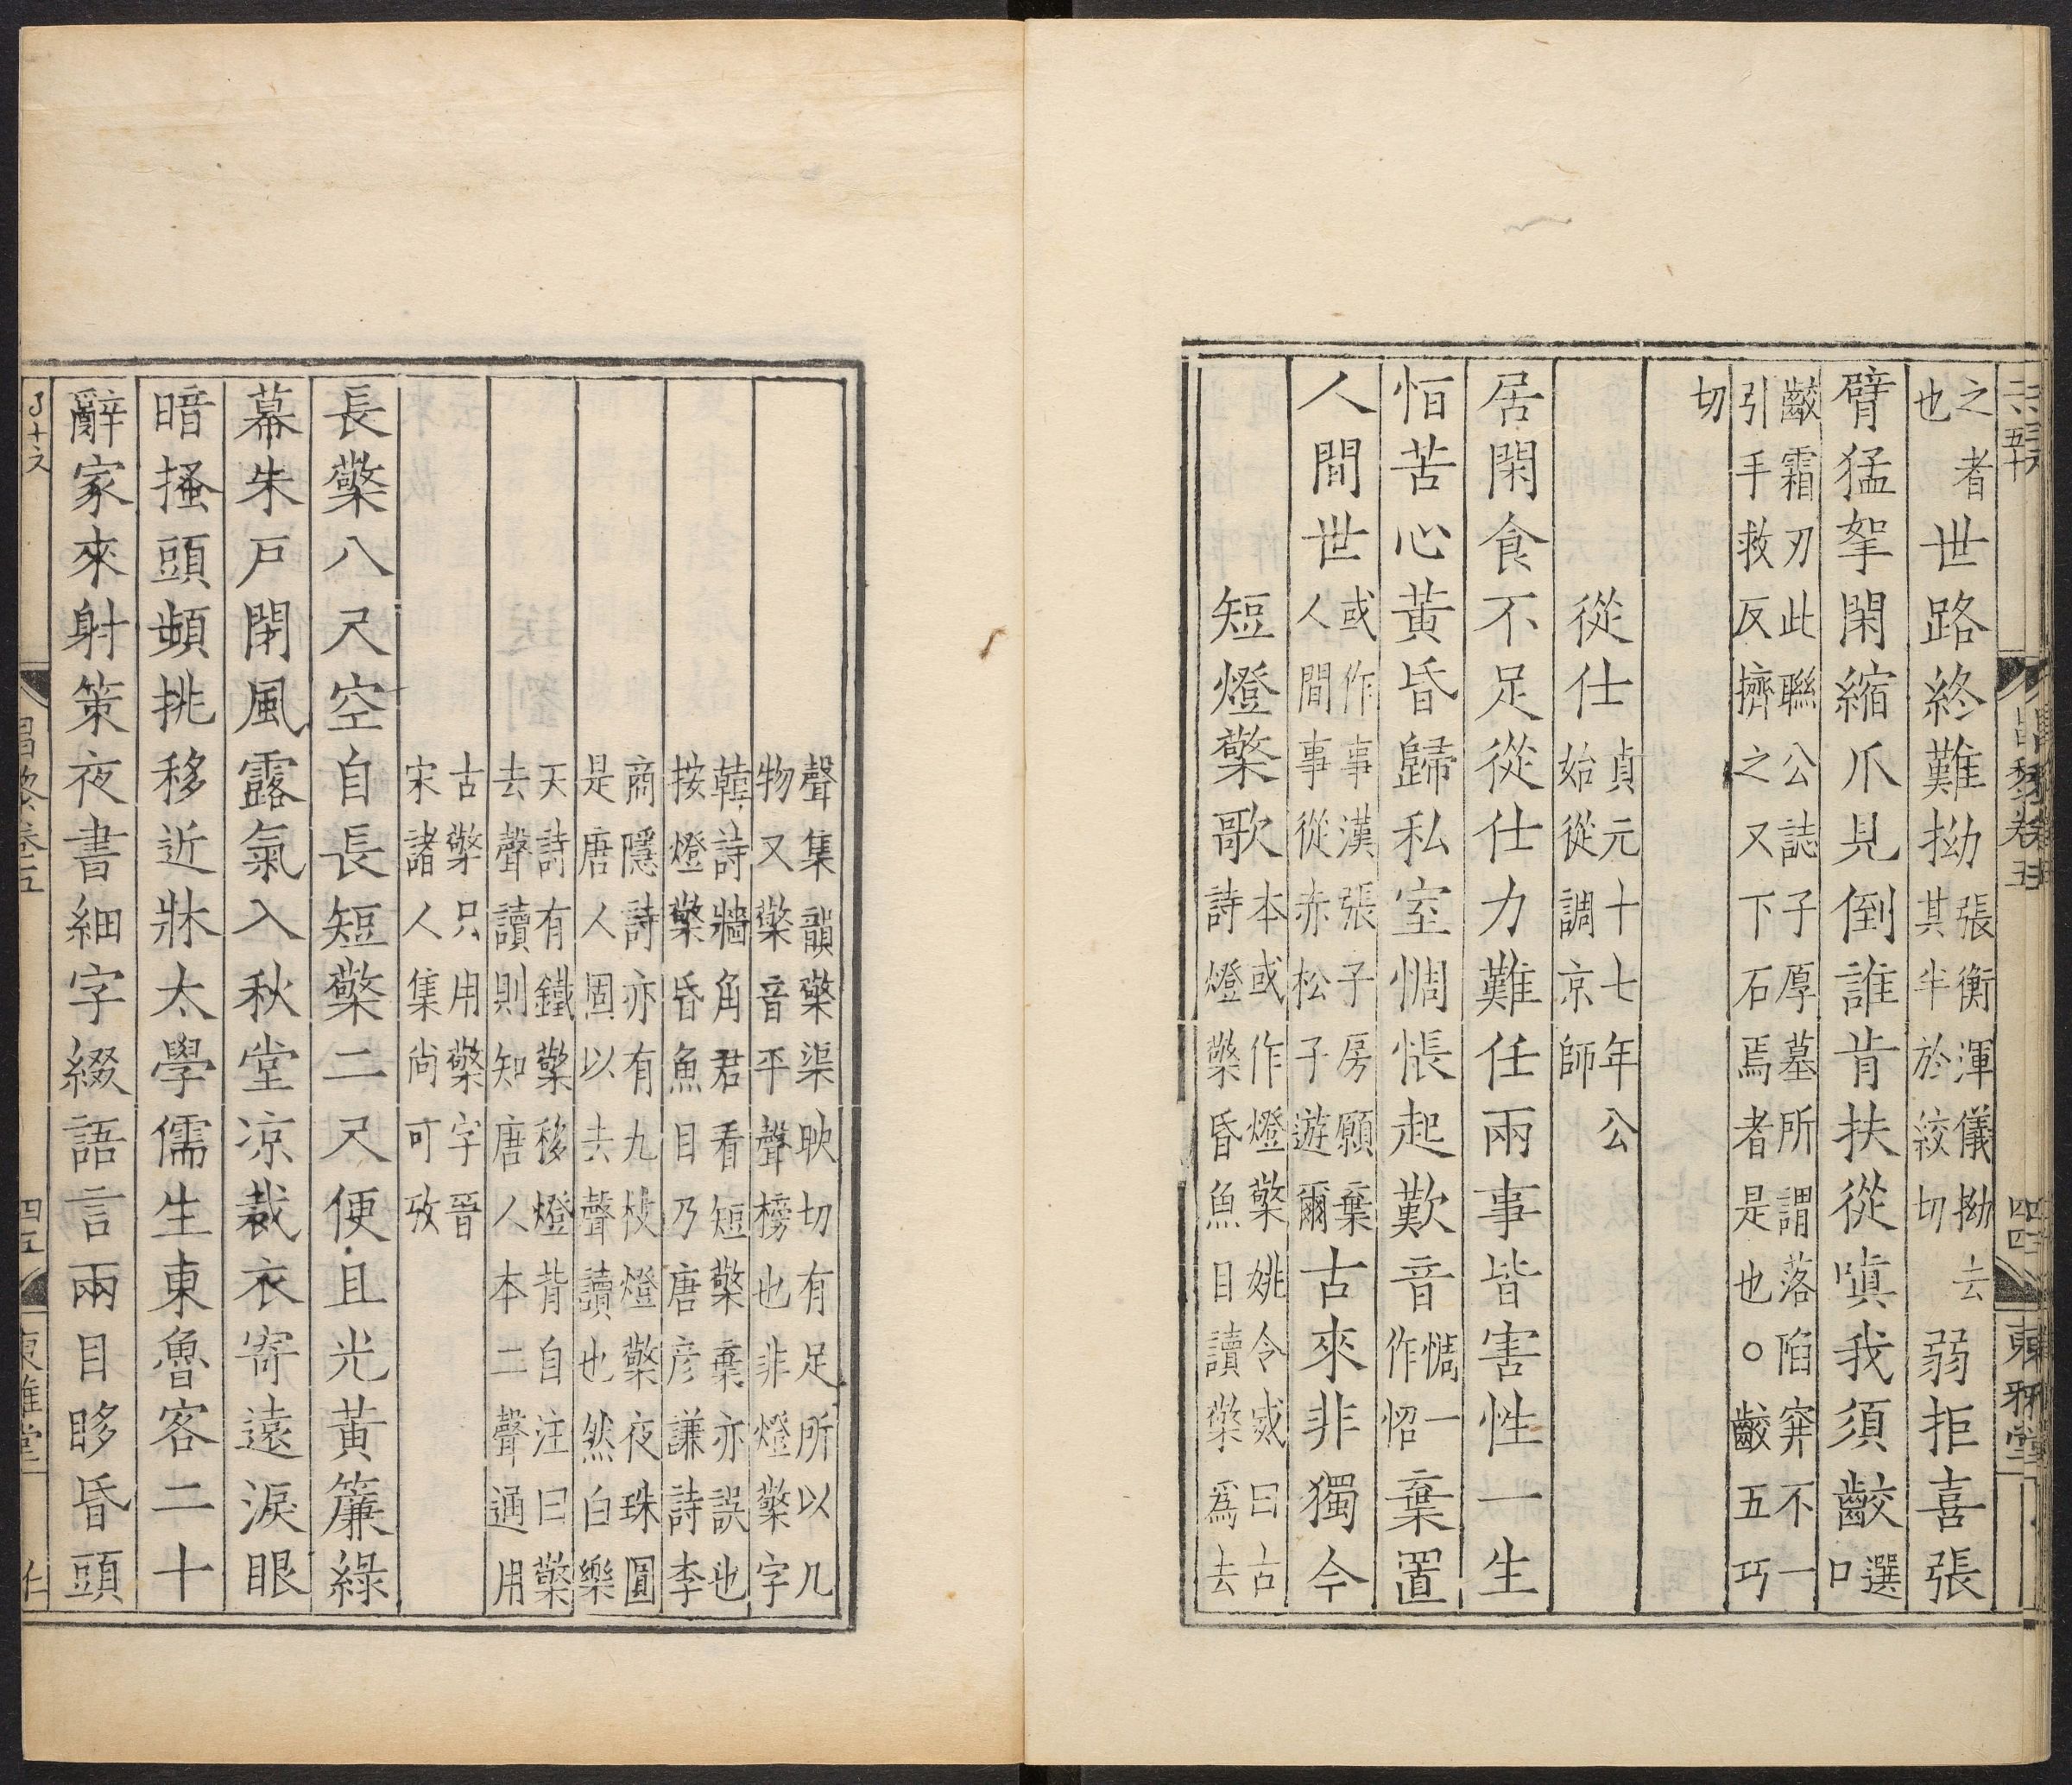 之者也世路終難拗張衡渾儀拗去其半於絞切弱拒喜張
臂猛拏閑縮爪見倒誰肯扶從嗔我須齩選口
齩霜刃此聯公誌子厚墓所謂落陷穽不一
引手救反擠之又下石焉者是也○齩五巧
切
從仕貞元十七年公始從調京師
居閑食不足從仕力難任兩事皆害性一生
恒苦心黃昏歸私室惆悵起歎音惆一作怊棄置
人間世或作事漢張子房願棄人間事從赤松子遊爾古來非獨今
短燈檠歌本或作燈檠姚令威曰古詩燈檠昏魚目讀檠爲去
聲集韻檠渠映切有足所以几
物又檠音平聲榜也非燈檠字
韓詩牆角君看短檠棄亦誤也
按燈檠昏魚目乃唐彥謙詩李
商隱詩亦有九枝燈檠夜珠圓
是唐人固以去聲讀也然白樂
天詩有鐵檠移燈背自注曰檠
去聲讀則知唐人本二聲通用
古檠只用檠字晉
宋諸人集尚可攷
長檠八尺空自長短檠二尺便且光黃簾綠
幕朱戶閉風露氣入秋堂凉裁衣寄遠淚眼
暗搔頭頻挑移近牀太學儒生東魯客二十
辭家來射策夜書細字綴語言兩目眵昏頭
昌黎卷五 四五 東雅堂 仁